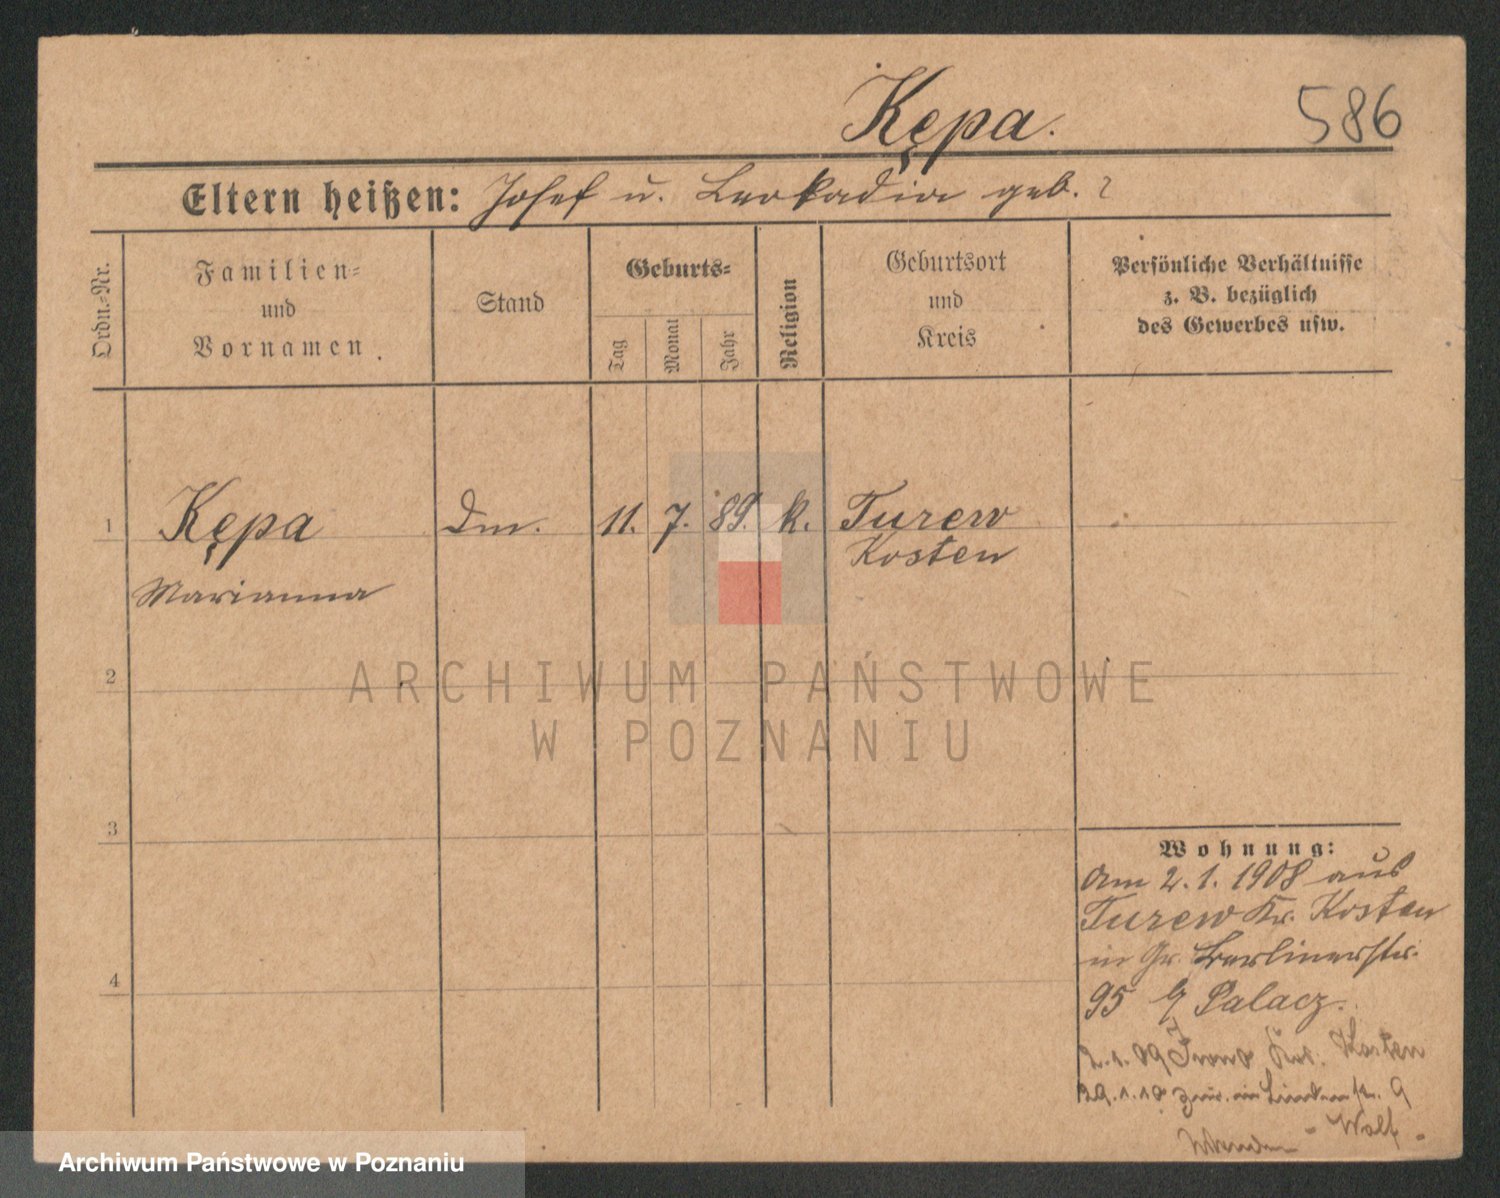 Kępa.
586
Eltern heißen: Josef u. Leokadia geb. ?
Ordn.-Nr.
Familien-
und
Vornamen
Stand
Geburts-
Tag
Monat
Jahr
Religion
Geburtsort
und
Kreis
Persönliche Verhältnisse
z. B. bezüglich
des Gewerbes usw.
1 Kępa Dm. 11. 7. 89. k. Turew
Kosten
Marianna
2
ARCHIWUM PAŃSTWOWE
W POZNANIU
3
4
Wohnung:
Am 2.1.1908 aus
Turew Kr. Kosten
in Gr. Berlinerstr.
95 b/ Palacz.
2.1.09 Kosten
29.1.10 zur. in Lindenstr. 9
Wolf
Archiwum Państwowe w Poznaniu